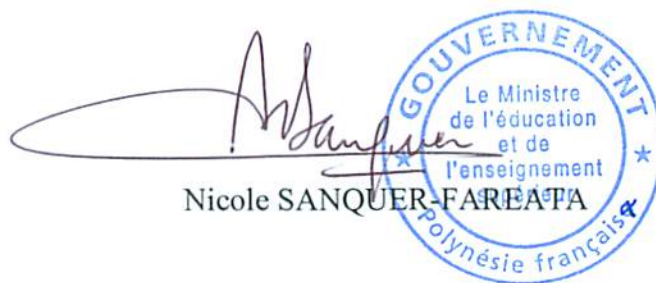 GOUVERNEMENT
Le Ministre
de l'éducation
et de
l'enseignement
supérieur
Polynésie française
Sanquer
Nicole SANQUER-FAREATA